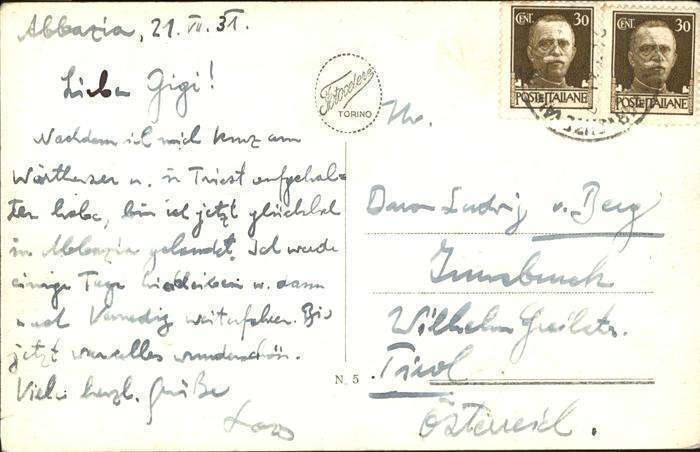 Abbazia, 21. VII. 31.
Lieber Gigi!
Nachdem ich mich kurz am
Wörthersee u. in Triest aufgehal=
ten habe, bin ich jetzt glücklich
in Abbazia gelandet. Ich werde
einige Tage hierbleiben u. dann
nach Venedig weiterfahren. Bis
jetzt war alles wunderschön.
Viele herzl. Grüße
Fotocelere
TORINO
N. 5
CENT. 30
POSTE ITALIANE
CENT. 30
POSTE ITALIANE
Baron Ludwig v. Berg
Innsbruck
Wilhelm Greilstr.
Tirol
Österreich.